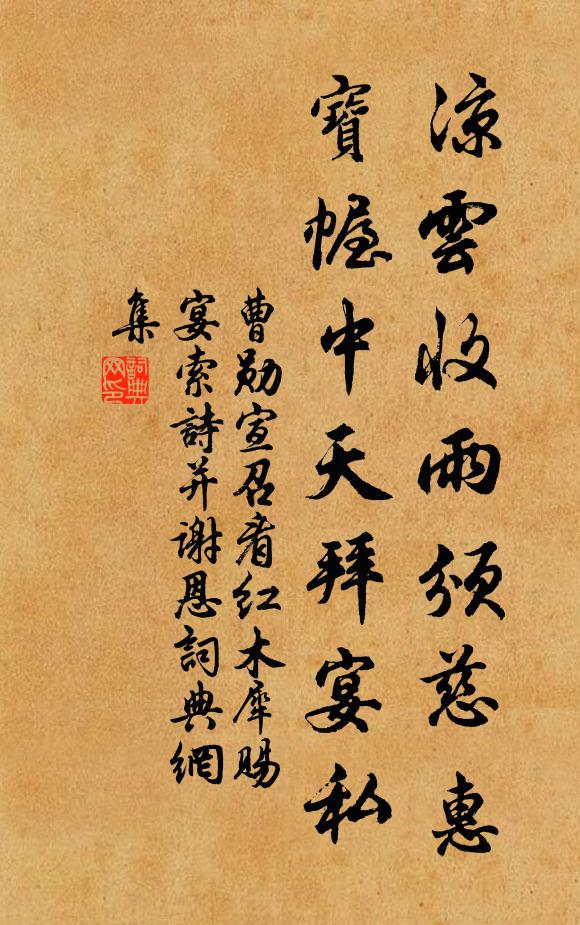 涼雲收雨頒慈惠
寶幄中天拜宴私
曹勛宣召看紅木犀賜
宴索詩并謝恩詞典網
集
詞典
网印